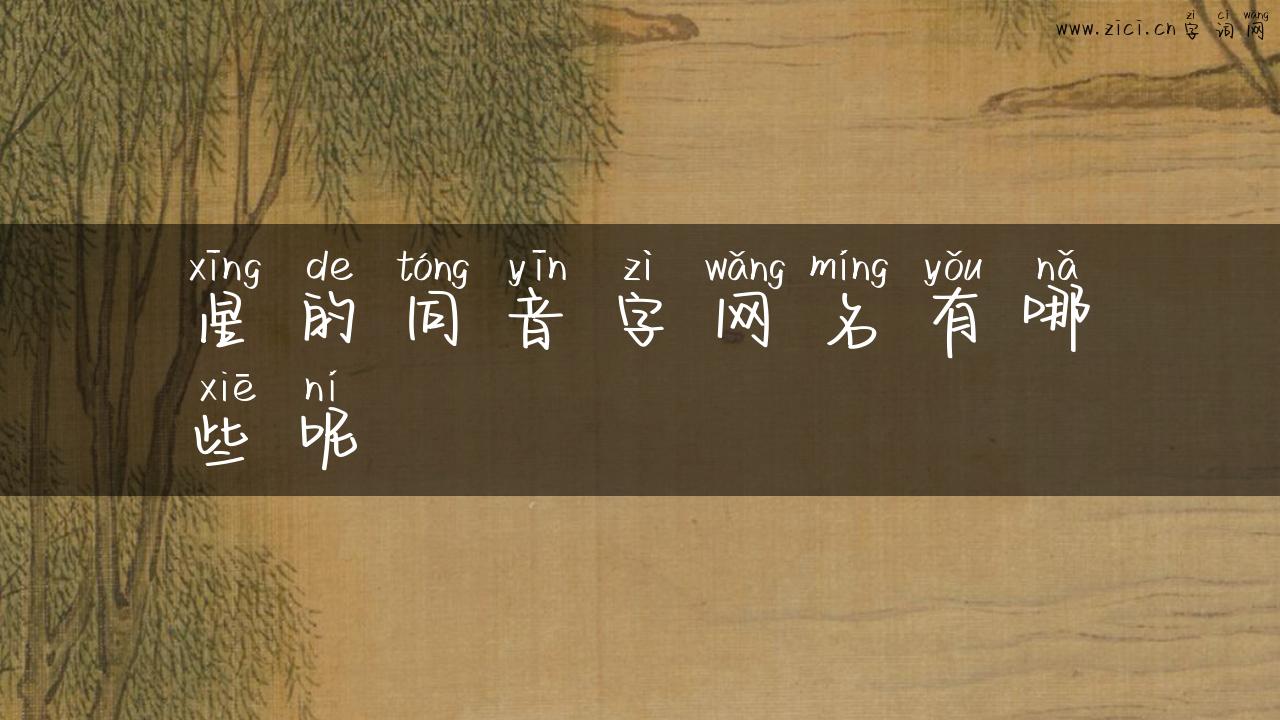 zì cí wǎng
www.zici.cn 字词网
xīng de tóng yīn zì wǎng míng yǒu nǎ
星的同音字网名有哪
xiē ní
些呢